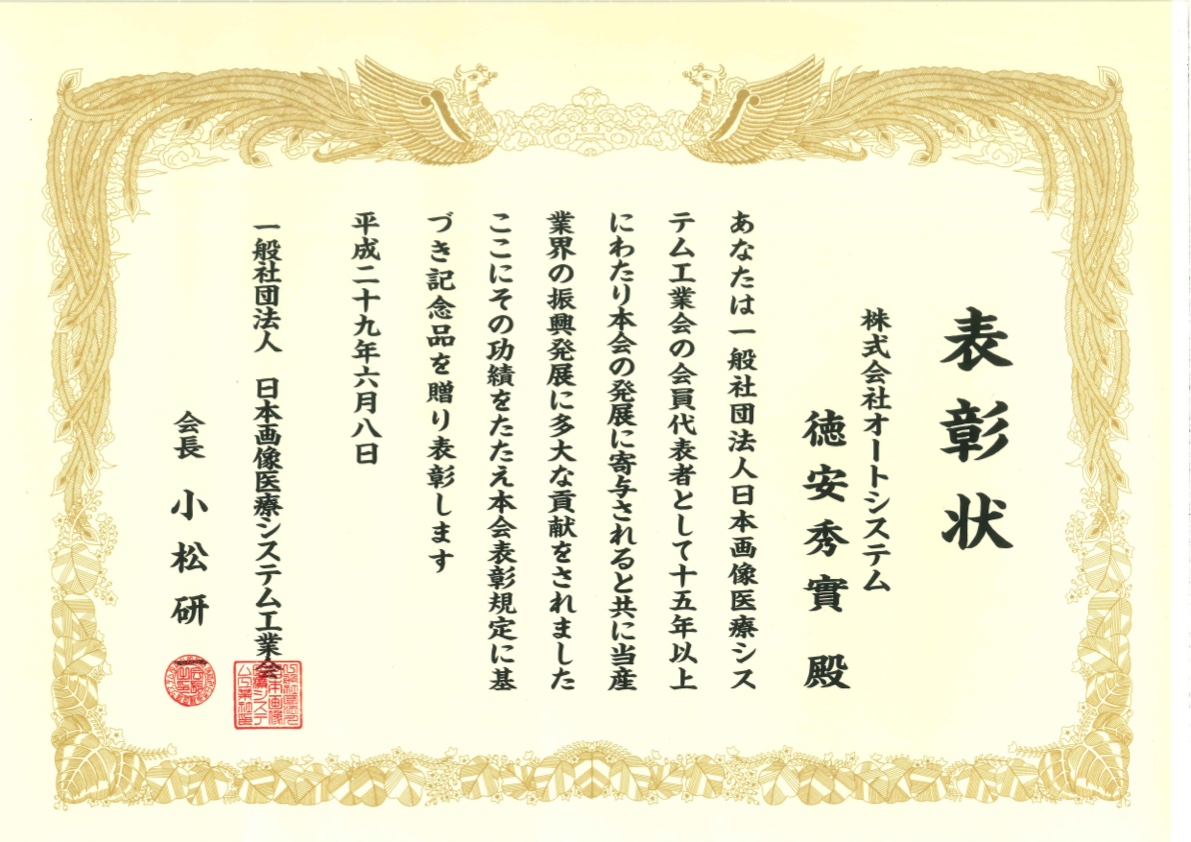 表彰状
株式会社オートシステム
徳安秀實 殿
あなたは一般社団法人日本画像医療シス
テム工業会の会員代表者として十五年以上
にわたり本会の発展に寄与されると共に当産
業界の振興発展に多大な貢献をされました
ここにその功績をたたえ本会表彰規定に基
づき記念品を贈り表彰します
平成二十九年六月八日
一般社団法人 日本画像医療システム工業会
会長 小松研一